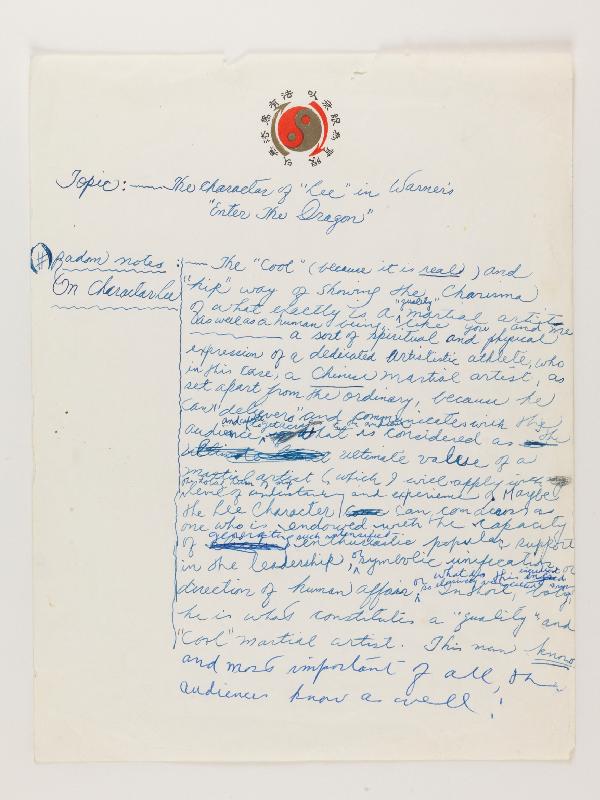 以無限為有限
以無法為有法
Topic:—— The character of "Lee" in Warner's
"Enter The Dragon"
# Radom notes :—— The "Cool" (because it is real) and
On Charactar Lee
"hip" way of showing the Charisma
of what exactly is a "quality" martial artist
(as well as a human being like you and me
—— a sort of spiritual and physical
expression of a dedicated artististic athlete, who
in this case, a Chinese martial artist, as
set apart from the ordinary, because he
can "delivers" and communicates with the
audience what is considered as the
ultimate value of a
martial artist (which I will apply with
my total sum of my
level of understanding and experience). Maybe
the Lee Character can condiser as
one who is endowed with the capacity
of generating such intensified enthusiastic popular support
in the leadership, or symbolic unification, or
direction of human affair, In short,
he is what constitutes a "quality" and
"cool" martial artist. This man know
and most important of all, the
audiences know as well!